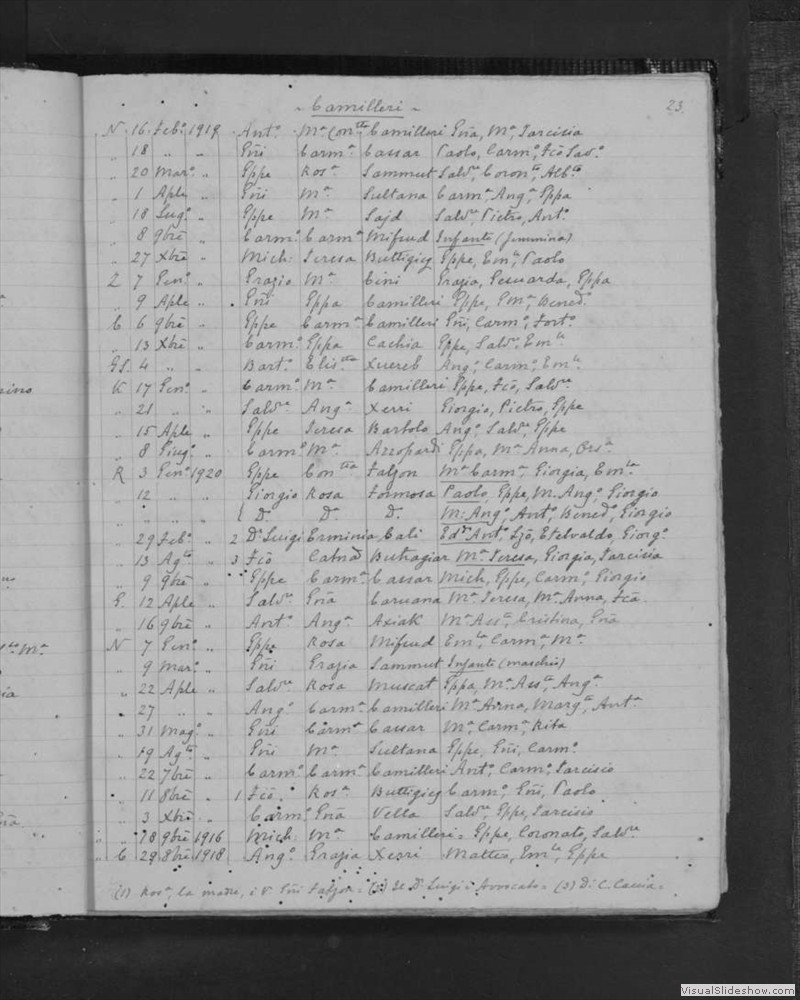 - Camilleri -
23.
N. 16 Feb.º 1919 Ant.º Mª Con.tta Camilleri Gña, Mª, Tarcisia
„ 18 „ „ Gñi Carmª Cassar Paolo, Carmº,
„ 20 Mar.º „ Gppe Rosª Sammut Salv.re
„ 1 Aple „ Gñi Mª Sultana Carmª, Angª, Gppa
„ 18 Lug.º „ Gppe Mª Sajd Salv.re, Pietro, Ant.º
„ 8 9bre „ Carmº Carmª Mifsud Infante (femmina)
„ 27 Xbre „ Mich. Teresa Buttigieg Gppe, Paolo
Z 7 Gen.º „ Grazio Mª Cini Grazia, Gppa
„ 9 Aple „ Gñi Gppa Camilleri Gppe,
C 6 9bre „ Gppe Carmª Camilleri Gñi, Carmº, Fort.º
„ 13 Xbre „ Carmº Gppa Cachia Gppe, Salv.re, Em.le
GS. 4 „ „ Bart.º Xuereb Ang.º, Carmº, Em.le
K 17 Gen.º „ Carmº Mª Camilleri Gppe, Fcõ, Salv.re
„ 21 „ „ Salv.re Angª Xerri Giorgio, Pietro, Gppe
„ 15 Aple „ Gppe Teresa Bartolo Ang.º, Salv.re, Gppe
„ 8 Giug.º „ Carmº Mª Azzopardi Gppa, Mª Anna,
R 3 Gen.º 1920 Gppe Con.tta Falzon Mª Carmª, Giorgia, Em.la
„ 12 „ „ Giorgio Rosa Formosa Paolo, Gppe, M. Ang.º, Giorgio
„ „ „ „ D. D. D. M. Ang.º, Ant.º, Bened.º, Giorgio
„ 29 Feb.º „ 2 Dr Luigi Erminia Cali Ant.º, Etelvaldo, Giorg.º
„ 13 Ag.to „ 3 Fcõ Catnª Buttagiar Mª Teresa, Giorgia, Tarcisia
„ 9 9bre „ Gppe Carmª Cassar Mich, Gppe, Carmº, Giorgio
G. 12 Aple „ Salv.re Gña Caruana Mª Teresa, Mª Anna, Fcã
„ 16 9bre „ Ant.º Angª Axiak Mª Ass.ta, Cristina, Gña
N 7 Gen.º „ Gppe Rosa Mifsud Em.la, Carmª, Mª
„ 9 Mar.º „ Gñi Grazia Sammut Infante (maschio)
„ 22 Aple „ Salv.re Rosa Muscat Gppa, Mª Ass.ta, Angª
„ 27 „ „ Ang.º Carmª Camilleri Mª Anna, Marg.ta, Antª
„ 31 Mag.º „ Gñi Carmª Cassar Mª, Carmª, Rita
„ 19 Ag.to „ Gñi Mª Sultana Gppe, Gñi, Carmº
„ 22 7bre „ Carmº Carmª Camilleri Ant.º, Carmº, Tarcisio
„ 11 8bre „ 1 Fcõ Rosª Buttigieg Carmº, Gñi, Paolo
„ 3 Xbre „ Carmº Gña Vella Salv.re, Gppe, Tarcisio
„ 18 9bre 1916 Mich. Mª Camilleri = Gppe, Coronato, Salv.re
„ C 29 8bre 1918 Ang.º Grazia Xerri Matteo, Em.le, Gppe
(1) Rosª, la madre, è V. Gñi Falzon = (2) Il Dr Luigi è Avvocato = (3) Di C. Caccia =
VisualSlideshow.com